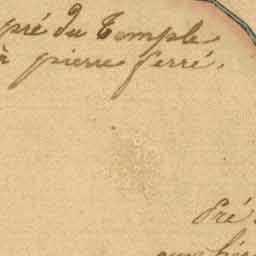 pré du Temple
à pierre ferré.
Pré
aux